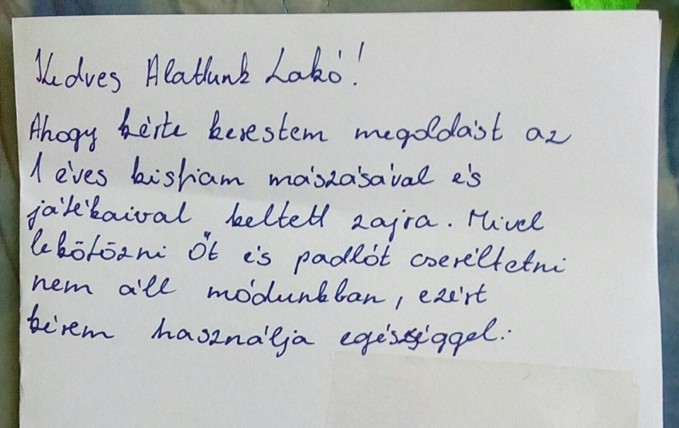 Kedves Alattunk Lakó!
Ahogy kérte kerestem megoldást az
1 éves kisfiam mászásával és
játékaival keltett zajra. Mivel
lekötözni Őt és padlót cseréltetni
nem áll módunkban, ezért
kérem használja egészséggel: